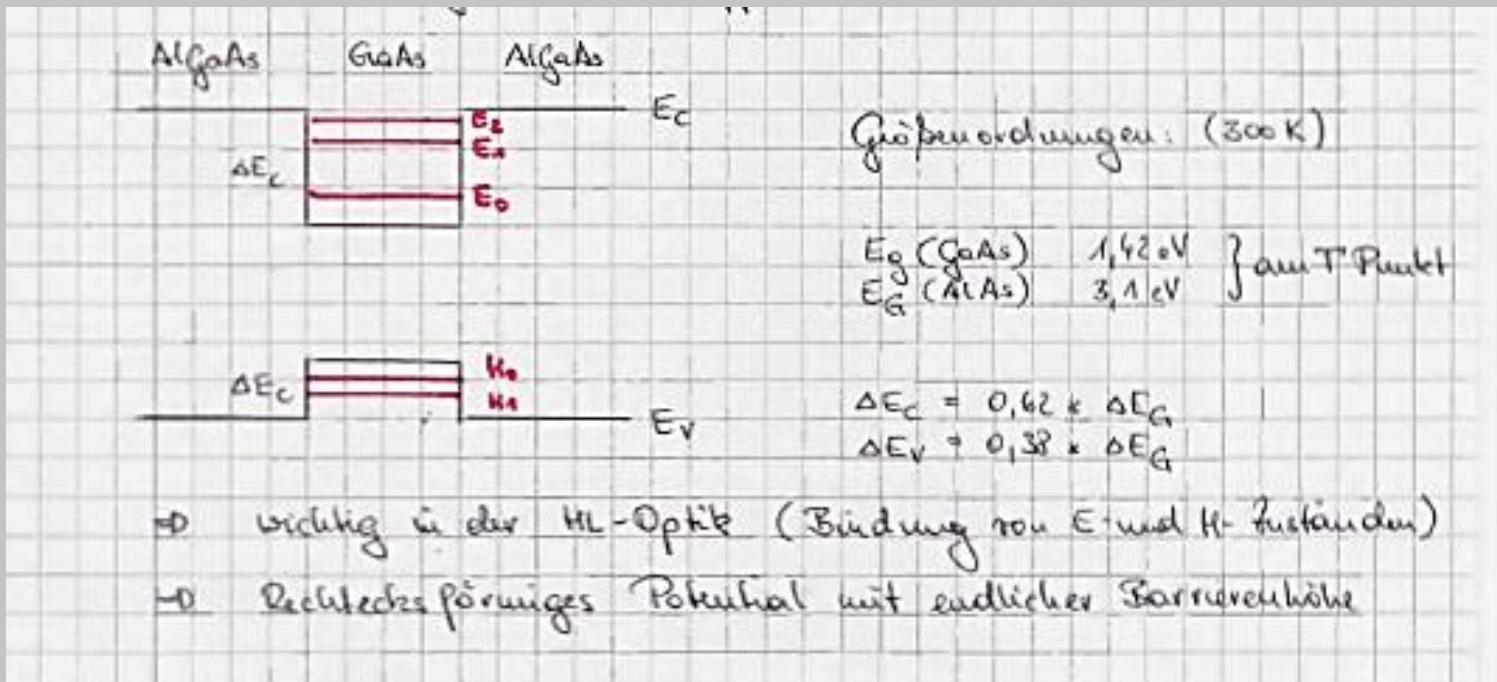 AlGaAs GaAs AlGaAs
E₂ E_C
E₁
ΔE_C
E₀
Größenordnungen: (300 K)
E_g (GaAs) 1,42 eV } am Γ Punkt
E_G (AlAs) 3,1 eV
H₀
ΔE_C
H₁
E_V
ΔE_C = 0,62 * ΔE_G
ΔE_V = 0,38 * ΔE_G
⇒ wichtig in der HL-Optik (Bindung von E- und H- Zuständen)
⇒ Rechtecksförmiges Potential mit endlicher Barrierenhöhe